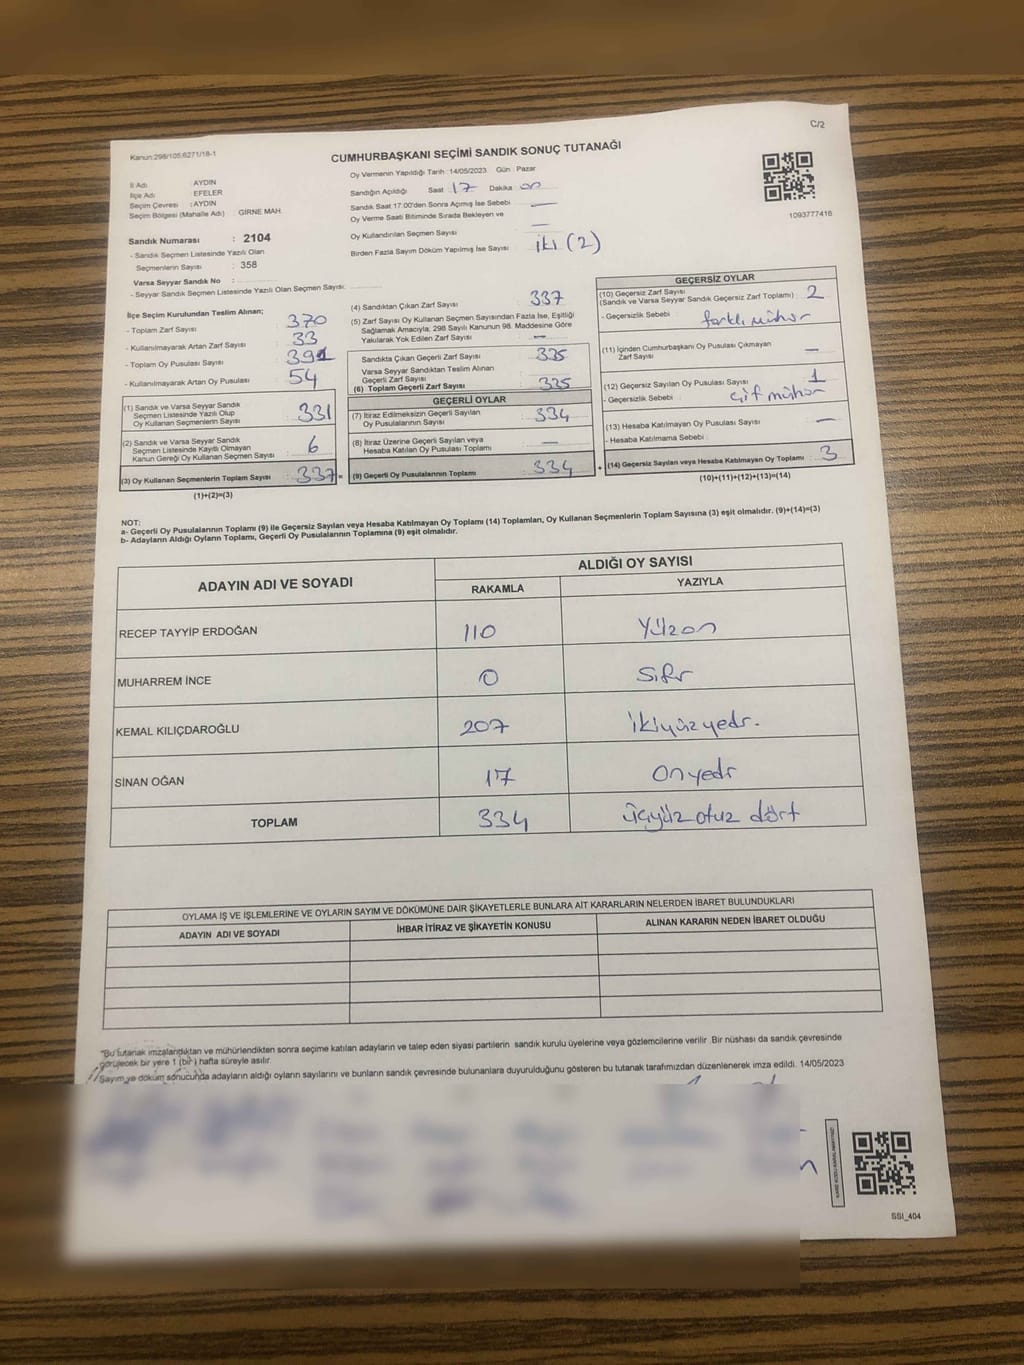 C/2
Kanun:298/105;6271/18-1
CUMHURBAŞKANI SEÇİMİ SANDIK SONUÇ TUTANAĞI
Oy Vermenin Yapıldığı Tarih :14/05/2023 Gün : Pazar
İl Adı : AYDIN
İlçe Adı : EFELER
Seçim Çevresi : AYDIN
Seçim Bölgesi (Mahalle Adı) GİRNE MAH.
Sandık Numarası : 2104
- Sandık Seçmen Listesinde Yazılı Olan
Seçmenlerin Sayısı : 358
Varsa Seyyar Sandık No :
- Seyyar Sandık Seçmen Listesinde Yazılı Olan Seçmen Sayısı:
Sandığın Açıldığı Saat 17 Dakika on
Sandık Saat 17:00'den Sonra Açmış İse Sebebi —
Oy Verme Saati Bitiminde Sırada Bekleyen ve
Oy Kullandırılan Seçmen Sayısı —
Birden Fazla Sayım Döküm Yapılmış İse Sayısı iki (2)
1093777416
İlçe Seçim Kurulundan Teslim Alınan;
- Toplam Zarf Sayısı : 370
- Kullanılmayarak Artan Zarf Sayısı : 33
- Toplam Oy Pusulası Sayısı : 391
- Kullanılmayarak Artan Oy Pusulası : 54
(1) Sandık ve Varsa Seyyar Sandık
Seçmen Listesinde Yazılı Olup
Oy Kullanan Seçmenlerin Sayısı : 331
(2) Sandık ve Varsa Seyyar Sandık
Seçmen Listesinde Kayıtlı Olmayan
Kanun Gereği Oy Kullanan Seçmen Sayısı : 6
(3) Oy Kullanan Seçmenlerin Toplam Sayısı : 337 =
(1)+(2)=(3)
(4) Sandıktan Çıkan Zarf Sayısı : 337
(5) Zarf Sayısı Oy Kullanan Seçmen Sayısından Fazla İse, Eşitliği
Sağlamak Amacıyla; 298 Sayılı Kanunun 98. Maddesine Göre
Yakılarak Yok Edilen Zarf Sayısı : —
Sandıkta Çıkan Geçerli Zarf Sayısı : 335
Varsa Seyyar Sandıktan Teslim Alınan
Geçerli Zarf Sayısı
(6) Toplam Geçerli Zarf Sayısı : 335
GEÇERLİ OYLAR
(7) İtiraz Edilmeksizin Geçerli Sayılan
Oy Pusulasının Sayısı : 334
(8) İtiraz Üzerine Geçerli Sayılan veya
Hesaba Katılan Oy Pusulası Toplamı : —
(9) Geçerli Oy Pusulalarının Toplamı : 334 +
GEÇERSİZ OYLAR
(10) Geçersiz Zarf Sayısı
(Sandık ve Varsa Seyyar Sandık Geçersiz Zarf Toplamı) : 2
- Geçersizlik Sebebi : farklı mühür
(11) İçinden Cumhurbaşkanı Oy Pusulası Çıkmayan
Zarf Sayısı : —
(12) Geçersiz Sayılan Oy Pusulası Sayısı : 1
- Geçersizlik Sebebi : çift mühür
(13) Hesaba Katılmayan Oy Pusulası Sayısı : —
- Hesaba Katılmama Sebebi :
(14) Geçersiz Sayılan veya Hesaba Katılmayan Oy Toplamı : 3
(10)+(11)+(12)+(13)=(14)
NOT:
a- Geçerli Oy Pusulalarının Toplamı (9) ile Geçersiz Sayılan veya Hesaba Katılmayan Oy Toplamı (14) Toplamları, Oy Kullanan Seçmenlerin Toplam Sayısına (3) eşit olmalıdır. (9)+(14)=(3)
b- Adayların Aldığı Oyların Toplamı, Geçerli Oy Pusulalarının Toplamına (9) eşit olmalıdır.
ADAYIN ADI VE SOYADI ALDIĞI OY SAYISI
RAKAMLA YAZIYLA
RECEP TAYYİP ERDOĞAN 110 Yüzon
MUHARREM İNCE 0 Sıfır
KEMAL KILIÇDAROĞLU 207 ikiyüzyedi.
SİNAN OĞAN 17 Onyedi
TOPLAM 334 üçyüz otuz dört
OYLAMA İŞ VE İŞLEMLERİNE VE OYLARIN SAYIM VE DÖKÜMÜNE DAİR ŞİKAYETLERLE BUNLARA AİT KARARLARIN NELERDEN İBARET BULUNDUKLARI
ADAYIN ADI VE SOYADI İHBAR İTİRAZ VE ŞİKAYETİN KONUSU ALINAN KARARIN NEDEN İBARET OLDUĞU
"Bu tutanak imzalandıktan ve mühürlendikten sonra seçime katılan adayların ve talep eden siyasi partilerin sandık kurulu üyelerine veya gözlemcilerine verilir. Bir nüshası da sandık çevresinde
görülecek bir yere 1 (bir) hafta süreyle asılır.
Sayım ve döküm sonucunda adayların aldığı oyların sayılarını ve bunların sandık çevresinde bulunanlara duyurulduğunu gösteren bu tutanak tarafımızdan düzenlenerek imza edildi. 14/05/2023
SSI_404